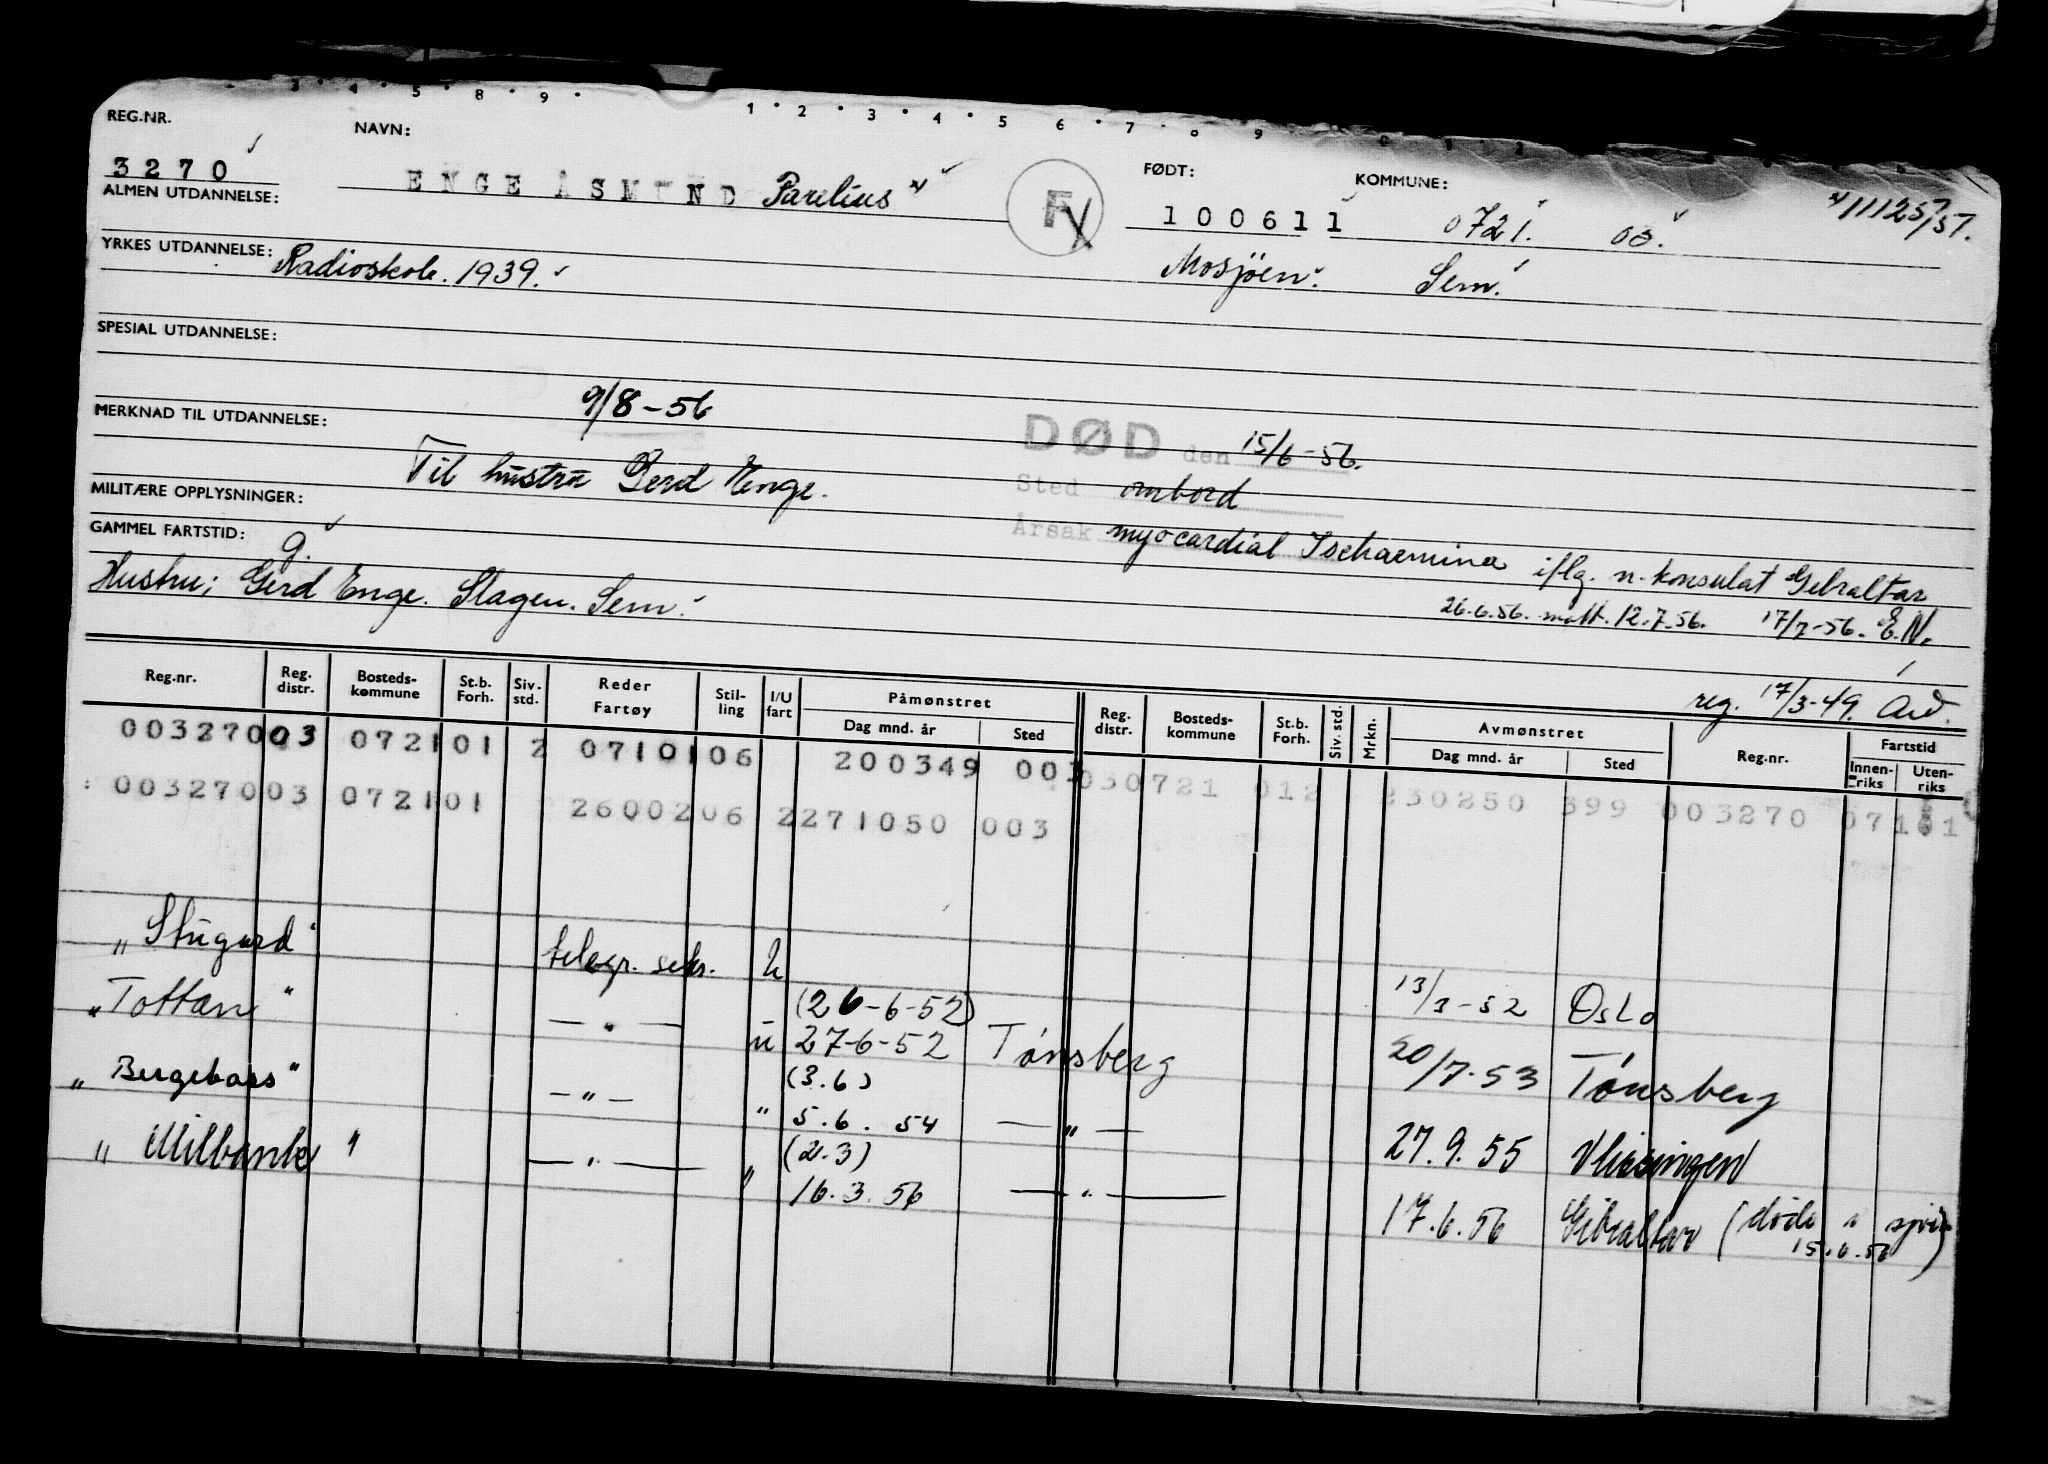 3 4 5 8 9 1 2 3 4 5 6 7 9
REG.NR. NAVN: FØDT: KOMMUNE:
3270 ENGE ÅSMUND Parelius F 100611 0721. 03. 111257/57.
ALMEN UTDANNELSE:
Mosjöen. Sem.
YRKES UTDANNELSE: Radioskole. 1939.
SPESIAL UTDANNELSE:
9/8-56
MERKNAD TIL UTDANNELSE: DØD den 15/6-56.
Til hustru Gerd Enge. Sted ombord
MILITÆRE OPPLYSNINGER: Årsak myocardial Ischaemina iflg. n. konsulat Gibraltar
GAMMEL FARTSTID: g. 26.6.56. mott. 12.7.56. 17/7-56. E.N.
Hustru; Gerd Enge. Slagen. Sem.
reg. 17/3-49.
Reg.nr. Reg. distr. Bosteds-kommune St.b. Forh. Siv. std. Reder Fartøy Stil-ling I/U fart Påmønstret Dag mnd. år Sted Reg. distr. Bosteds-kommune St.b. Forh. Siv. std. Mrkn. Avmønstret Dag mnd. år Sted Reg.nr. Fartstid Innen-riks Uten-riks
00327003 072101 2 0710106 200349 003 030721 012 230250 399 003270 07101
00327003 072101 2600206 2271050 003
"Stugard" telegr. sekr. u 13/3-52 Oslo
"Tottan" — " — u (26-6-52) 27-6-52 Tønsberg 20/7-53 Tønsberg
"Bergeboss" — " — " (3.6) 5.6.54 — " — 27.9.55 Vlissingen
"Milbank" — " — " (2.3) 16.3.56 — " — 17.6.56 Gibraltar (døde 15.6.56)